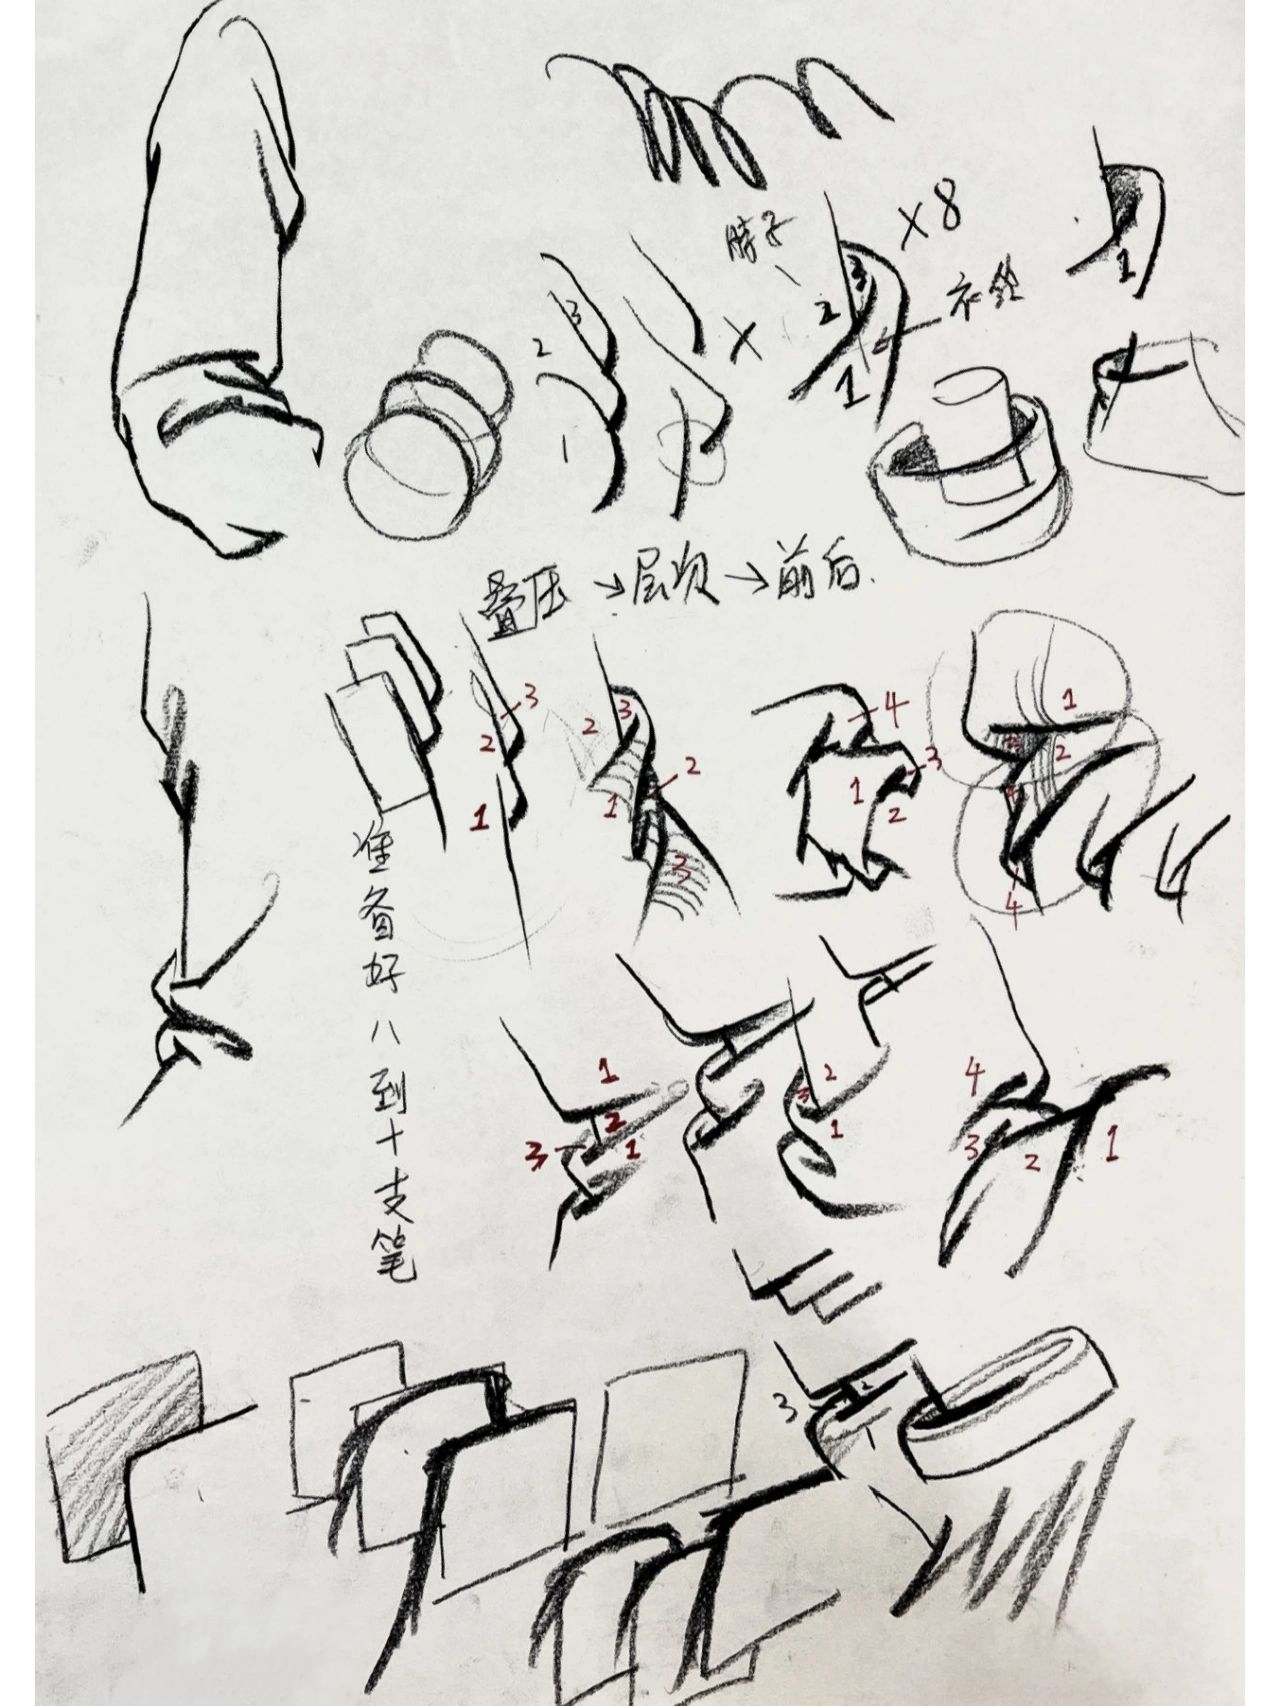 ×8
脖子
3
2
1
衣领
3
2
1
×
1
叠压→层次→前后.
3
2
1
3
2
1
2
3
4
3
1
2
1
3
2
4
4
准备好八到十支笔
1
2
3
1
2
3
1
4
3
2
1
3